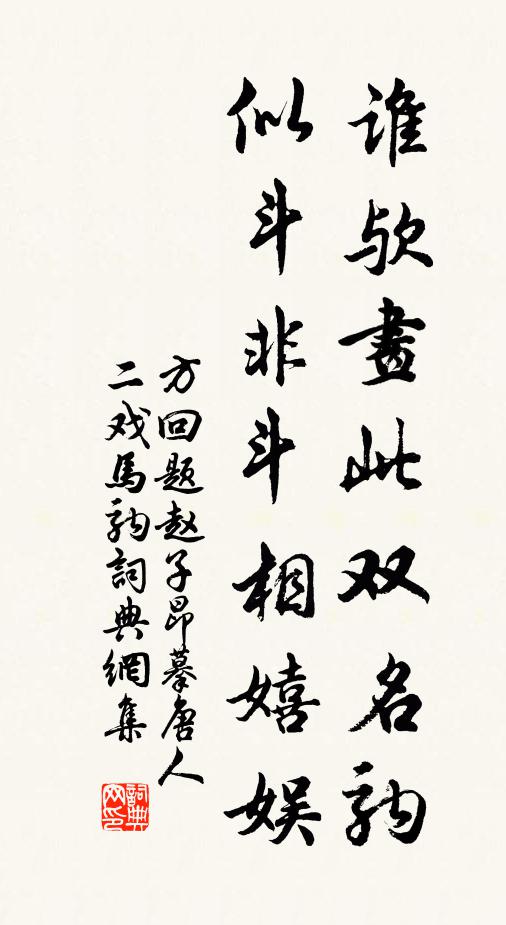 谁欤畫此双名驹
似斗非斗相嬉娱
方回题赵子昂摹唐人
二戏馬驹詞典網集
詞典
网印